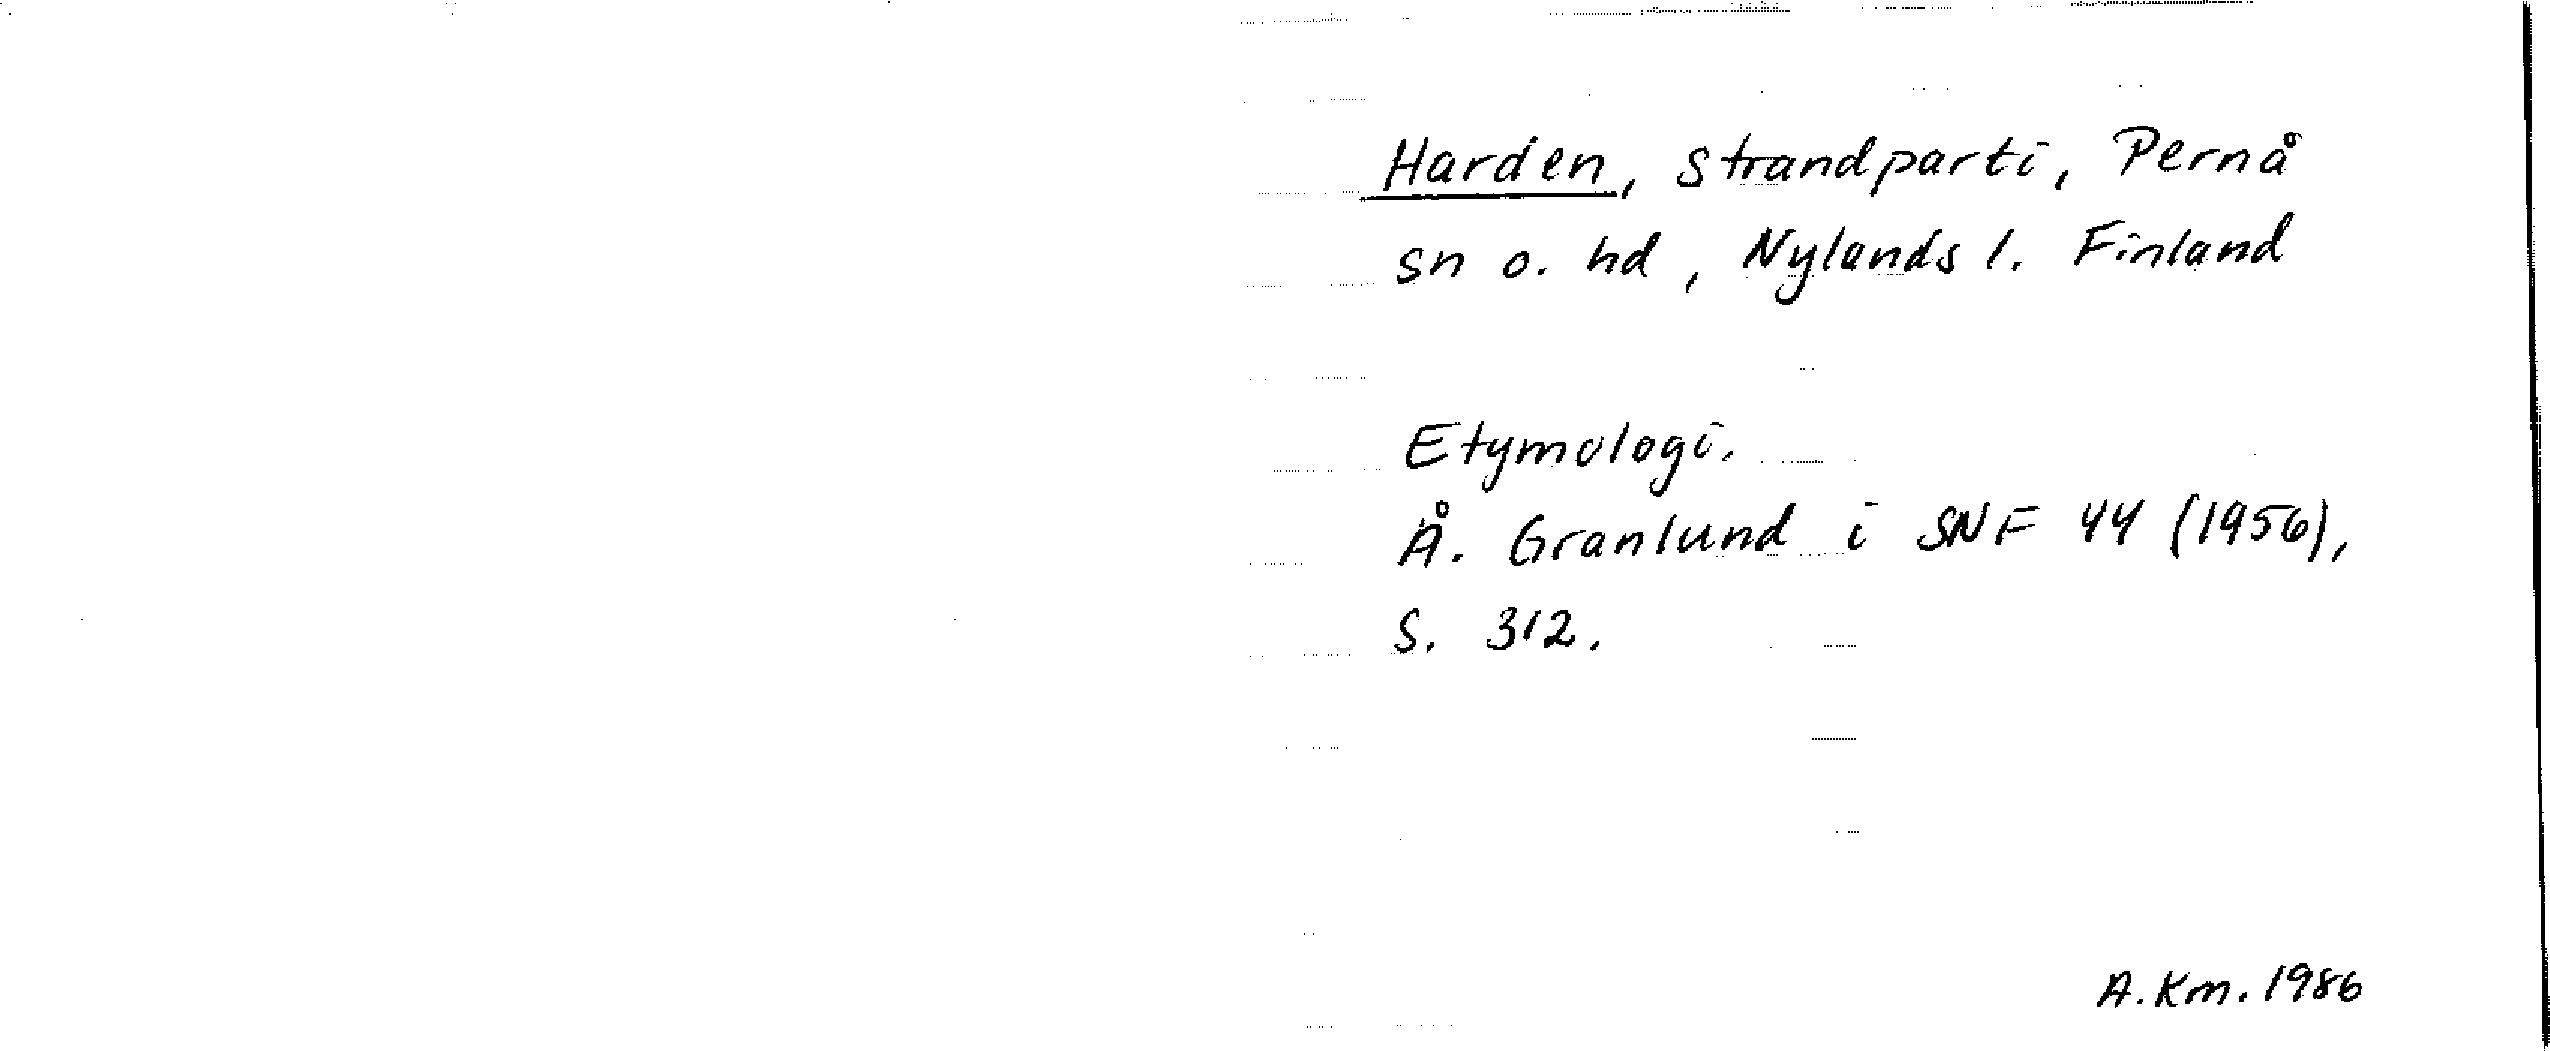 Harden, strandparti, Pernå
sn o. hd, Nylands l. Finland
Etymologi.
Å. Granlund i SNF 44 (1956),
S. 312.
A. Km. 1986